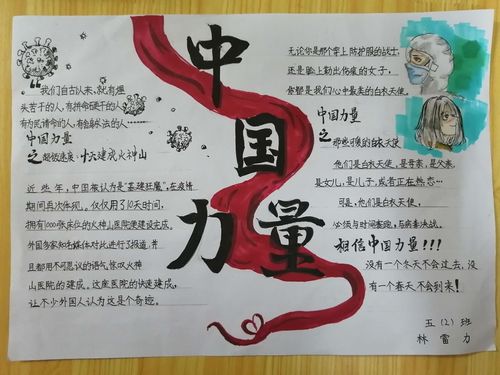 中
国
力
量
"我们自古以来,就有埋
头苦干的人,有拼命硬干的人,
有为民请命的人,有舍身求法的人…
中国力量
之
超级速度:十六建成火神山
近些年,中国被认为是"基建狂魔",在疫情
期间再次体现。仅仅用了10天时间,
拥有1000张床位的火神山医院便建设完成。
外国多家知名媒体对此进行了报道,并
且都用不可思议的语气,惊叹火神
山医院的建成。这座医院的快速建成,
让不少外国人认为这是个奇迹。
无论你是那个穿上防护服的战士,
还是脸上勒出伤痕的女子,
你都是我们心中最美的白衣天使。
中国力量
之
那些可敬的白衣天使
他们是白衣天使,是母亲,是父亲,
是女儿,是儿子,或者正在热恋…
可是,他们是白衣天使,
必须与时间赛跑,与病毒决战。
相信中国力量!!!
没有一个冬天不会过去,没
有一个春天不会到来!
五(2)班
林雷力